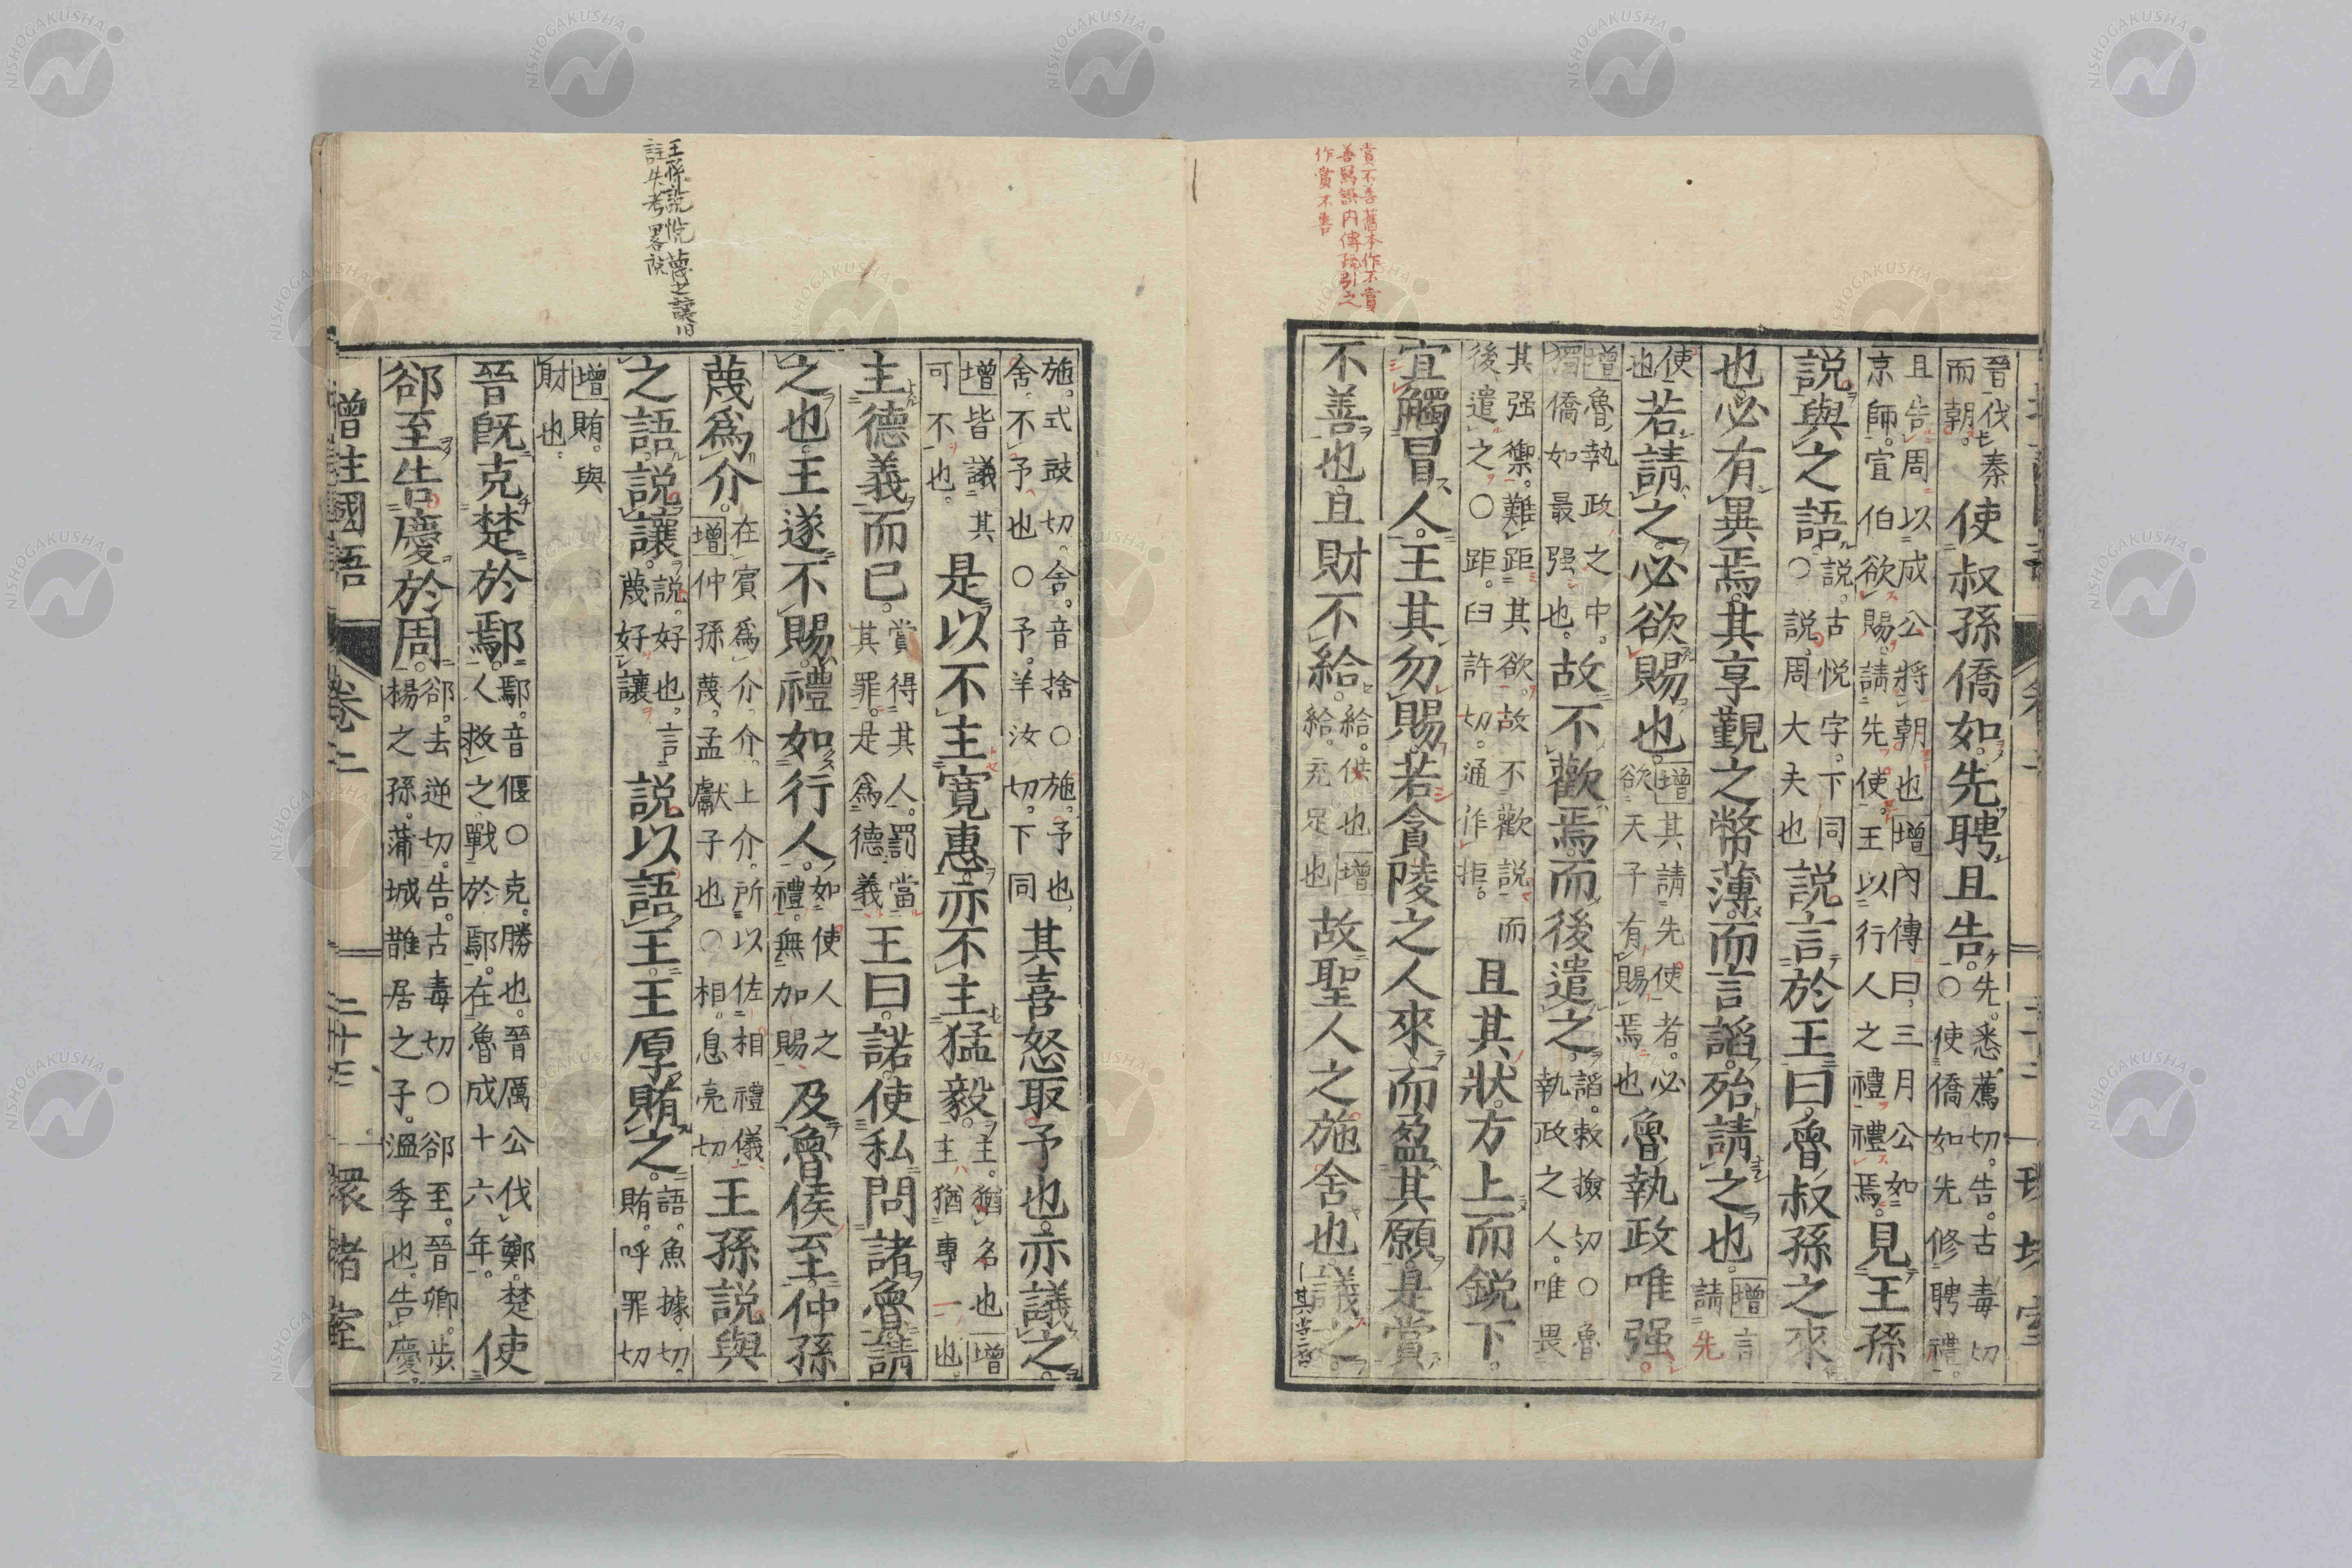 賞不善舊本作不賞
善爲誤内傳疏引之
作賞不善
晉伐秦而朝。使叔孫僑如。先聘且告。先。悉薦切。告。古毒切○使僑如先修聘禮。
且告周以成公將朝也增内傳曰、三月公如京師。宣伯欲賜。請先使。王以行人之禮禮焉。見王孫
説與之語。説。古悦字。下同○説、周大夫也説言於王曰。魯叔孫之來
也必有異焉。其享覲之幣薄。而言諂。殆請之也。增言請先
使也若請之。必欲賜也。增其請先使者。必欲天子有賜焉也魯執政唯强。
增魯執政之中。獨僑如最强也。故不歡焉。而後遣之。諂。敕撿切○魯執政之人。唯畏
其强禦。難距其欲。故不歡説而後遣之○距。臼許切。通作拒。且其狀。方上而鋭下。
宜觸冒人。王其勿賜。若貪陵之人來。而盈其願。是賞
不善也。且財不給。給。供也增給。充足也故聖人之施舍也。議之。
施。式豉切。舍。音捨○施。予也、舍。不予也○予。羊汝切。下同其喜怒取予也。亦議之。
增皆議其可不也。是以不主寛惠。亦不主猛毅。主。猶名也增主、猶專一也
主德義而已。賞得其人。罰當其罪。是爲德義王曰。諾。使私問諸魯。請
之也。王遂不賜。禮如行人。如使人之禮。無加賜及魯侯至。仲孫
蔑爲介。在賓爲介、介。上介。所以佐相禮儀、增仲孫蔑。孟獻子也○相。息亮切王孫説與
之語。説讓。説。好也。言蔑好讓説以語王。王厚賄之。語。魚據切。賄。呼罪切
增賄。與財也。
晉既克楚於鄢。鄢。音偃○克。勝也。晉厲公伐鄭。楚人救之、戰於鄢。在魯成十六年。使
郤至告慶於周。郤。去逆切。告。古毒切○郤至。晉卿。步楊之孫。蒲城鵲居之子。溫季也。告慶。
王孫説悦 德之讓旧
增註國語 卷二 二十三 環堵室